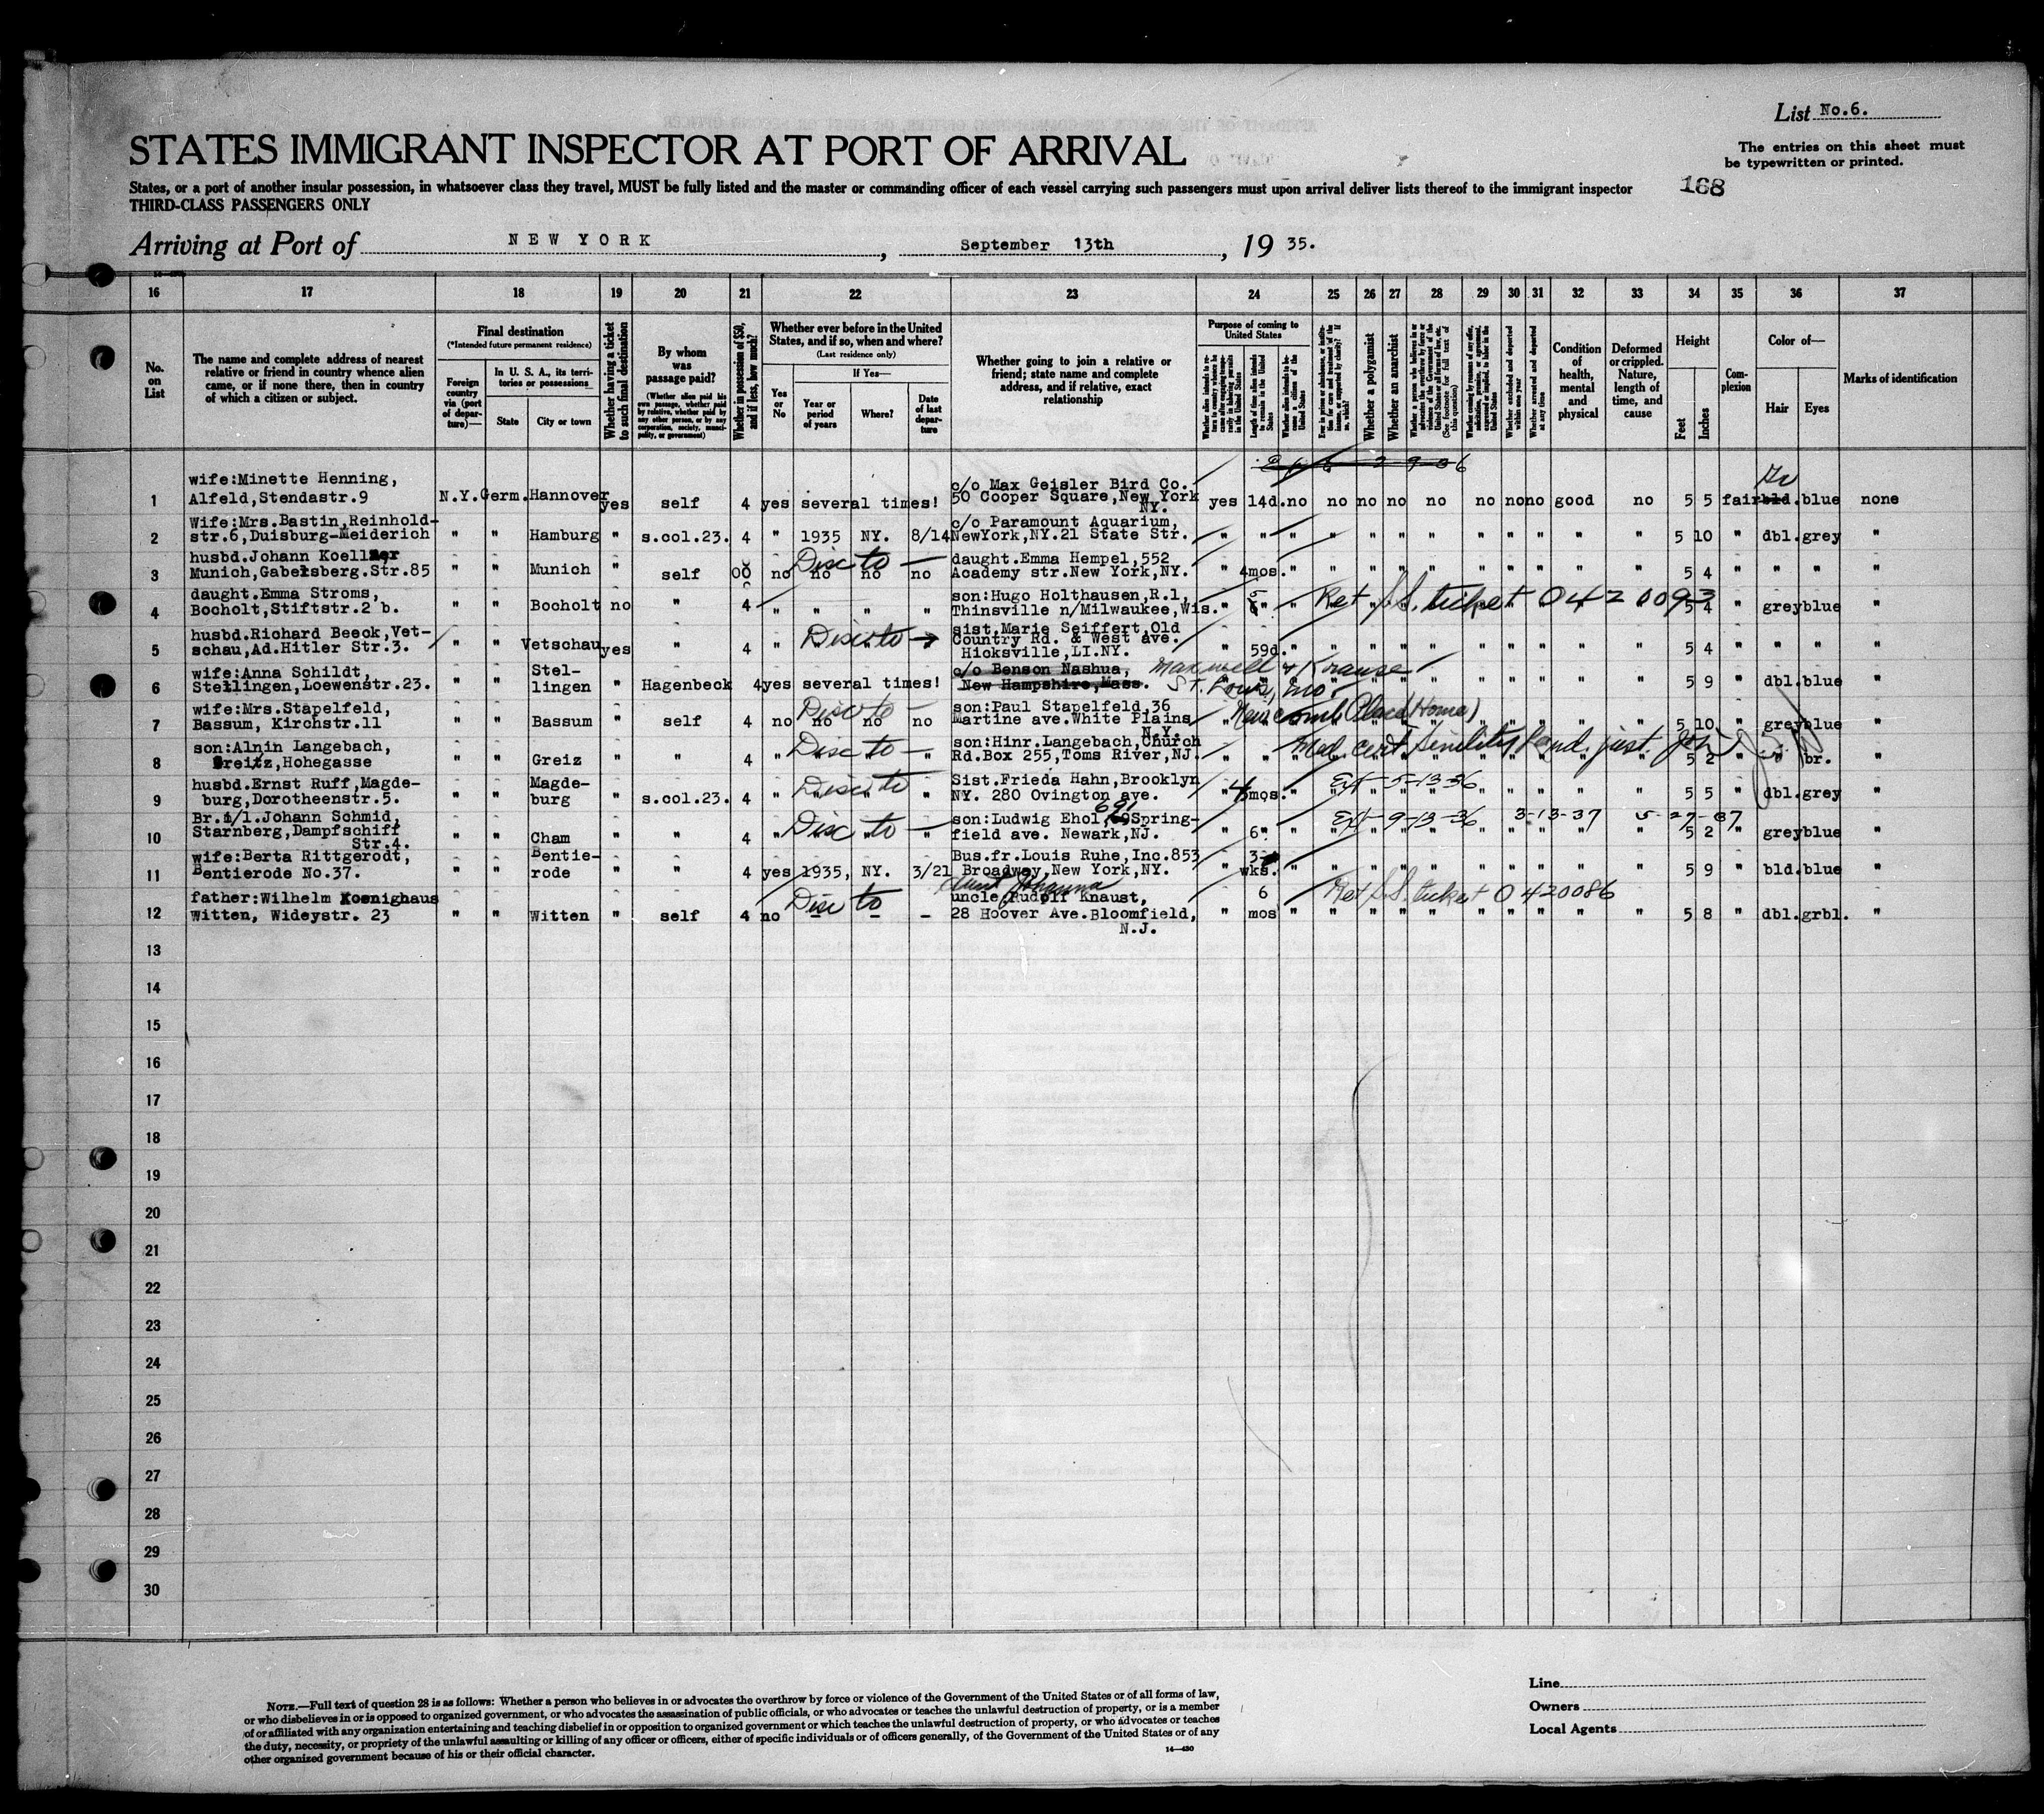 List No.6.
The entries on this sheet must
be typewritten or printed.
STATES IMMIGRANT INSPECTOR AT PORT OF ARRIVAL
168
States, or a port of another insular possession, in whatsoever class they travel, MUST be fully listed and the master or commanding officer of each vessel carrying such passengers must upon arrival deliver lists thereof to the immigrant inspector
THIRD-CLASS PASSENGERS ONLY
Arriving at Port of NEW YORK, September 13th, 19 35.
16 17 18 19 20 21 22 23 24 25 26 27 28 29 30 31 32 33 34 35 36 37
No.
on
List
The name and complete address of nearest
relative or friend in country whence alien
came, or if none there, then in country
of which a citizen or subject.
Final destination
(*Intended future permanent residence)
Foreign
country
via (port
of depar-
ture)—
In U. S. A., its terri-
tories or possessions
State
City or town
Whether having a ticket
to such final destination
By whom
was
passage paid?
(Whether alien paid his
own passage, whether paid
by relative, whether paid by
any other person, or by any
corporation, society, munici-
pality, or government)
Whether in possession of $50,
and if less, how much?
Whether ever before in the United
States, and if so, when and where?
(Last residence only)
Yes
or
No
If Yes—
Year or
period
of years
Where?
Date
of last
depar-
ture
Whether going to join a relative or
friend; state name and complete
address, and if relative, exact
relationship
Purpose of coming to
United States
Length of time alien intends
to remain in the United
States
Whether alien intends to be-
come a citizen of the
United States
Whether a polygamist
Whether an anarchist
Whether excluded and deported
within one year
Whether arrested and deported
at any time
Condition
of
health,
mental
and
physical
Deformed
or crippled.
Nature,
length of
time, and
cause
Height
Feet
Inches
Com-
plexion
Color of—
Hair
Eyes
Marks of identification
1 wife:Minette Henning,
Alfeld,Stendastr.9 N.Y. Germ. Hannover yes self 4 yes several times! c/o Max Geisler Bird Co.
50 Cooper Square,New York
NY. yes 14d. no no no no no no no no good no 5 5 fair bld. blue none
2 Wife:Mrs.Bastin,Reinhold-
str.6,Duisburg-Meiderich " " Hamburg " s.col.23. 4 " 1935 NY. 8/14 c/o Paramount Aquarium,
NewYork,NY.21 State Str. " " " " " " " " " " " " 5 10 " dbl. grey "
3 husbd.Johann Koellner
Munich,Gabelsberg.Str.85 " " Munich " self 00 no no no no Disc to — daught.Emma Hempel,552
Academy str.New York,NY. " 4mos. " " " " " " " " " " 5 4 " " " "
4 daught.Emma Stroms,
Bocholt,Stiftstr.2 b. " " Bocholt no " 4 " " " " son:Hugo Holthausen,R.1,
Thinsville n/Milwaukee,Wis. " " Ret S.S. ticket 0420093 5 4 " grey blue "
5 husbd.Richard Beeck,Vet-
schau,Ad.Hitler Str.3. " " Vetschau yes " 4 Disc to sist.Marie Seiffert,Old
Country Rd. & West ave.
Hicksville,LI.NY. " 59d. " " " " " " " " " " 5 4 " " " "
6 wife:Anna Schildt,
Stellingen,Loewenstr.23. " " Stel-
lingen " Hagenbeck 4 yes several times! c/o Benson Nashua,
New Hampshire,Mass. Maxwell & Krause
St. Louis, Mo. 5 9 " dbl. blue "
7 wife:Mrs.Stapelfeld,
Bassum, Kirchstr.11 " " Bassum " self 4 no no no no Disc to — son:Paul Stapelfeld,36
Martine ave.White Plains
N.Y. Newcomb Place (Home) 5 10 " grey blue "
8 son:Alnin Langebach,
Greitz,Hohegasse " " Greiz " " 4 " " " " Disc to — son:Hinr.Langebach,Church
Rd.Box 255,Toms River,NJ. Med. cert Senility 5 2 " " br. "
9 husbd.Ernst Ruff,Magde-
burg,Dorotheenstr.5. " " Magde-
burg " s.col.23. 4 " " " " Disc to Sist.Frieda Hahn,Brooklyn
NY. 280 Ovington ave. " 4 mos. " Ext-5-13-36 5 5 " dbl. grey "
10 Br.i/l.Johann Schmid,
Starnberg,Dampfschiff
Str.4. " " Cham " " 4 " " " " Disc to — son:Ludwig Ehol, 691 Spring-
field ave. Newark,NJ. " 6" " Ext-9-13-36 3-13-37 5-27-37 5 2 " grey blue "
11 wife:Berta Rittgerodt,
Bentierode No.37. " " Bentie-
rode " " 4 yes 1935, NY. 3/21 Bus.fr.Louis Ruhe,Inc.853
Broadway,New York,NY. " 3-
wks. " " " " " " " " " " 5 9 " bld. blue "
12 father:Wilhelm Koenighaus
witten, Wideystr. 23 " " Witten " self 4 no – – – Disc to aunt Johanna
uncle,Rudolf Knaust,
28 Hoover Ave.Bloomfield,
N.J. " 6
mos " Ret S.S. ticket 0420086 5 8 " dbl. grbl. "
13
14
15
16
17
18
19
20
21
22
23
24
25
26
27
28
29
30
NOTE.—Full text of question 28 is as follows: Whether a person who believes in or advocates the overthrow by force or violence of the Government of the United States or of all forms of law,
or who disbelieves in or is opposed to organized government, or who advocates the assassination of public officials, or who advocates or teaches the unlawful destruction of property, or is a member
of or affiliated with any organization entertaining and teaching disbelief in or opposition to organized government or which teaches the unlawful destruction of property, or who advocates or teaches
the duty, necessity, or propriety of the unlawful assaulting or killing of any officer or officers, either of specific individuals or of officers generally, of the Government of the United States or of any
other organized government because of his or their official character.
14—430
Line
Owners
Local Agents